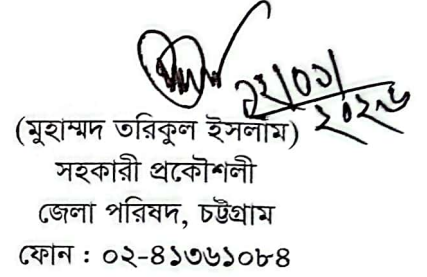 (মুহাম্মদ তরিকুল ইসলাম)
সহকারী প্রকৌশলী
জেলা পরিষদ, চট্টগ্রাম
ফোন : ০২-৪১৩৬১০৮৪